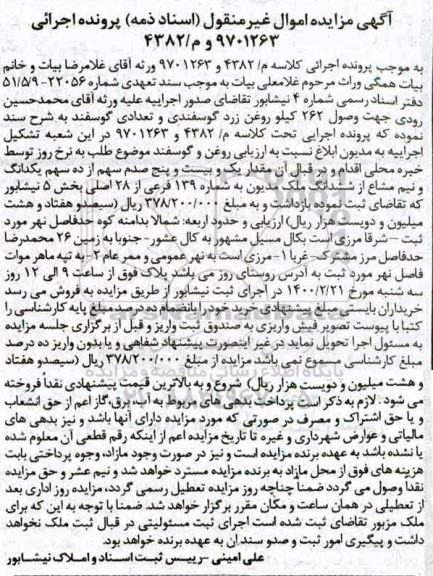 آگهی مزایده اموال غیرمنقول (اسناد ذمه) پرونده اجرائی
۹۷۰۱۲۶۳ و م/۴۳۸۲
به موجب پرونده اجرائی کلاسه م/ ۴۳۸۲ و ۹۷۰۱۲۶۳ ورثه آقای غلامرضا بیات و خانم
بیات همگی وراث مرحوم غلامعلی بیات به موجب سند تعهدی شماره ۲۲۰۵۶-۵۱/۵/۹
دفتر اسناد رسمی شماره ۴ نیشابور تقاضای صدور اجراییه علیه ورثه آقای محمدحسین
رودی جهت وصول ۲۶۲ کیلو روغن زرد گوسفندی و تعدادی گوسفند به شرح سند
نموده که پرونده اجرایی تحت کلاسه م/ ۴۳۸۲ و ۹۷۰۱۲۶۳ در این شعبه تشکیل
اجراییه به مدیون ابلاغ نسبت به ارزیابی روغن و گوسفند موضوع طلب به نرخ روز توسط
خبره محلی اقدام و در قبال آن مقدار یک و بیست و پنج صدم سهم از ده سهم یکدانگ
و نیم مشاع از ششدانگ ملک مدیون به شماره ۱۳۹ فرعی از ۲۸ اصلی بخش ۵ نیشابور
که تقاضای ثبت نموده بازداشت و به مبلغ ۳۷۸/۲۰۰/۰۰۰ ریال (سیصدو هفتاد و هشت
میلیون و دویست هزار ریال) ارزیابی و حدود اربعه: شمالا بدامنه کوه حدفاصل نهر مورد
ثبت – شرقا مرزی است بکال مسیل مشهور به کال عشور- جنوبا به زمین ۲۶ محمدرضا
حدفاصل مرز مشترک- غربا ۱-مرزی است به نهر عمومی و ممر عام ۲- به تپه ماهر موات
فاصل نهر مورد ثبت به آدرس روستای روز می باشد پلاک فوق از ساعت ۹ الی ۱۲ روز
سه شنبه مورخ ۱۴۰۰/۲/۲۱ در اجرای ثبت نیشابور از طریق مزایده به فروش می رسد
خریداران بایستی مبلغ پیشنهادی خرید خود را بانضمام ده درصد مبلغ پایه کارشناسی را
کتبا با پیوست تصویر فیش واریزی به صندوق ثبت واریز و قبل از برگزاری جلسه مزایده
به مسئول اجرا تحویل نماید در غیر اینصورت پیشنهاد شفاهی و یا بدون واریز ده درصد
مبلغ کارشناسی مسموع نمی باشد مزایده از مبلغ ۳۷۸/۲۰۰/۰۰۰ ریال (سیصدو هفتاد
و هشت میلیون و دویست هزار ریال) شروع و به بالاترین قیمت پیشنهادی نقدا فروخته
می شود . لازم به ذکر است پرداخت بدهی های مربوط به آب، برق، گاز اعم از حق انشعاب
و یا حق اشتراک و مصرف در صورتی که مورد مزایده دارای آنها باشد و نیز بدهی های
مالیاتی و عوارض شهرداری و غیره تا تاریخ مزایده اعم از اینکه رقم قطعی آن معلوم شده
یا نشده باشد به عهده برنده مزایده است و نیز در صورت وجود مازاد، وجوه پرداختی بابت
هزینه های فوق از محل مازاد به برنده مزایده مسترد خواهد شد و نیم عشر و حق مزایده
نقدا وصول می گردد ضمنا چنانچه روز مزایده تعطیل رسمی گردد، مزایده روز اداری بعد
از تعطیلی در همان ساعت و مکان مقرر برگزار خواهد شد. ضمنا با توجه به این که برای
ملک مزبور تقاضای ثبت شده است اجرای ثبت مسئولیتی در قبال ثبت ملک نخواهد
داشت و پیگیری امور ثبت و صدو سند ان به عهده برنده خواهد بود.
علی امینی-رییس ثبت اسناد و املاک نیشابور